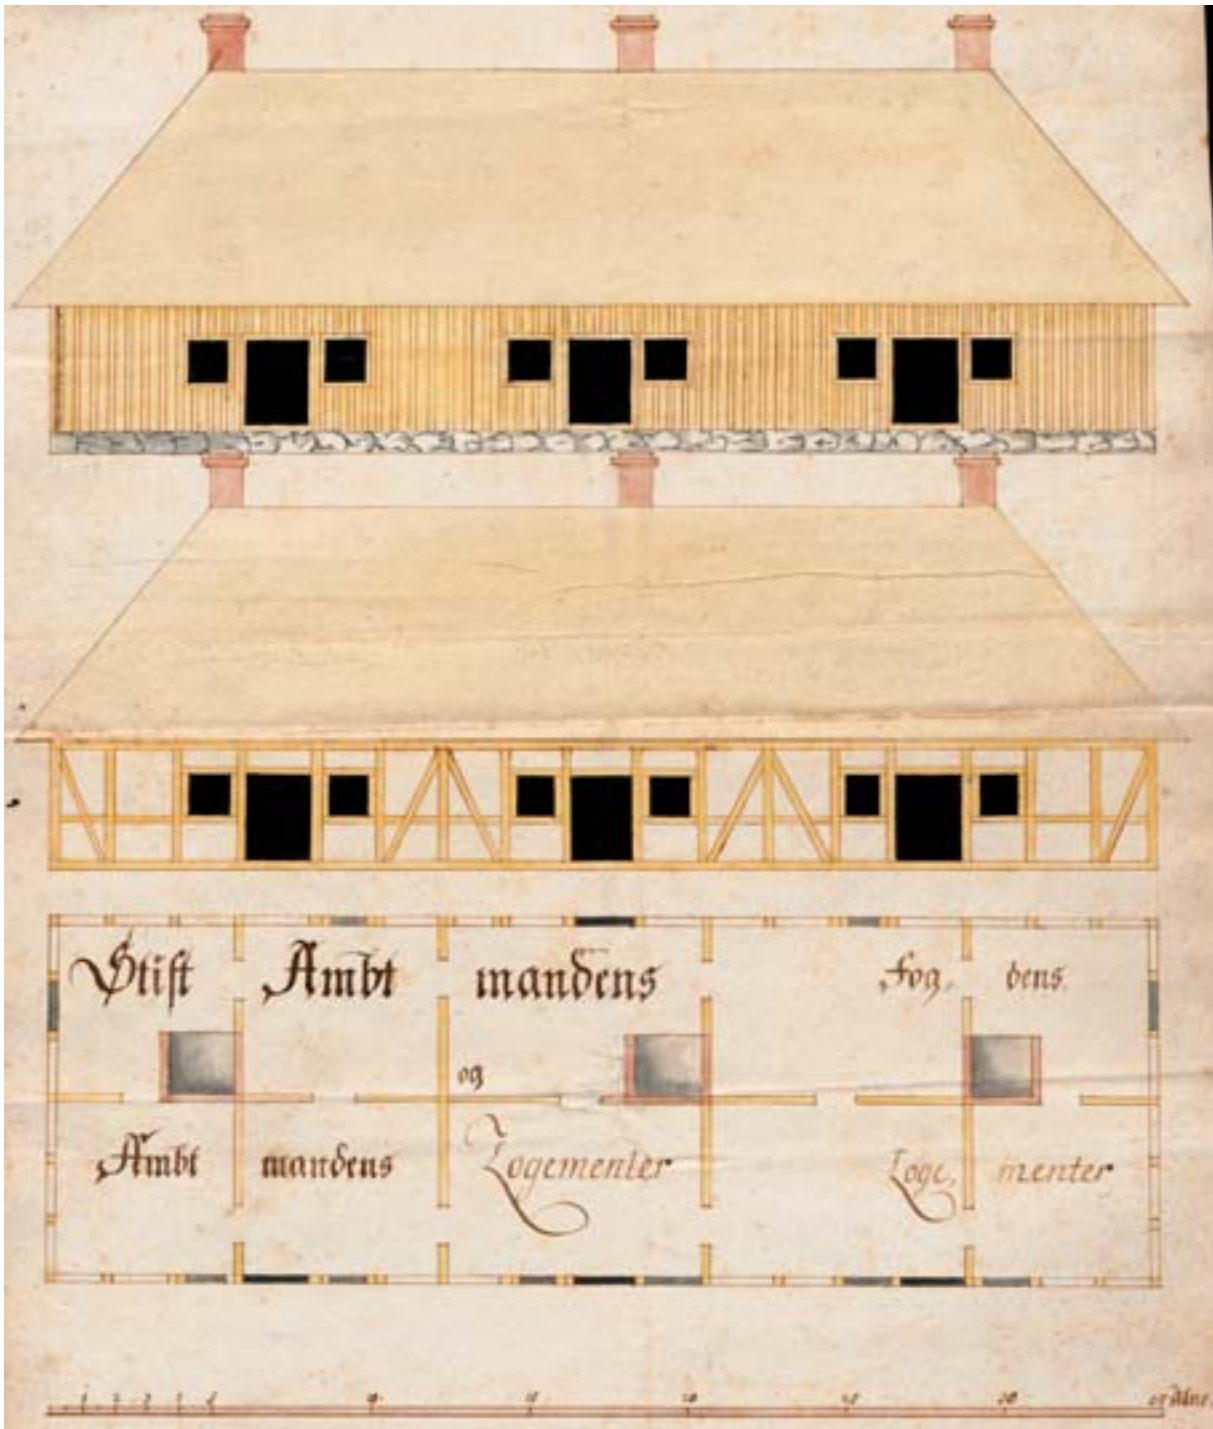 Stift Ambt mandens Fog, dens
og
Ambt mandens Logementer Loge, menter
1 2 3 4 5 10 15 20 25 30 35 Alne.